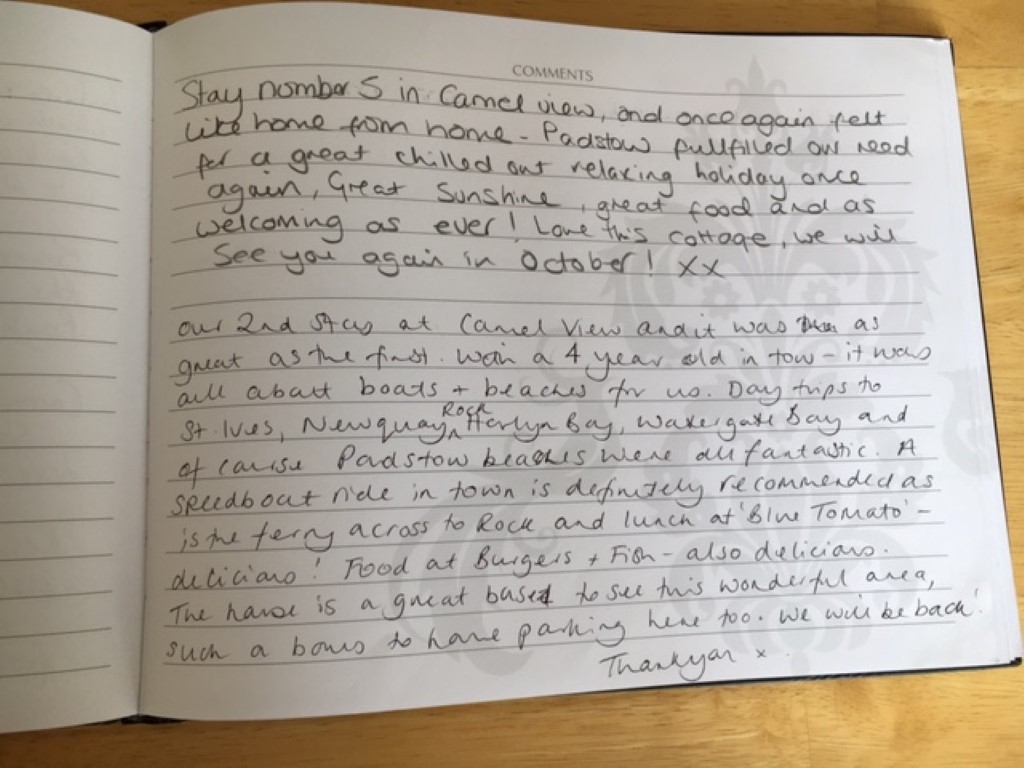 COMMENTS
Stay nomber 5 in Camel view, and once again felt
like home from home - Padstow fullfilled our need
for a great chilled out relaxing holiday once
again, Great sunshine, great food and as
welcoming as ever! Love this cottage, we will
See you again in October! XX
our 2nd stay at Camel View and it was as
great as the first. With a 4 year old in tow - it was
all about boats + beaches for us. Day trips to
St. Ives, Newquay, ^Rock Harlyn Bay, Watergate Bay and
of course Padstow beaches were all fantastic. A
speedboat ride in town is definitely recommended as
is the ferry across to Rock and lunch at 'Blue Tomato' -
delicious! Food at Burgers + Fish - also delicious.
The house is a great base to see this wonderful area,
such a bonus to have parking here too. We will be back!
Thankyou x.